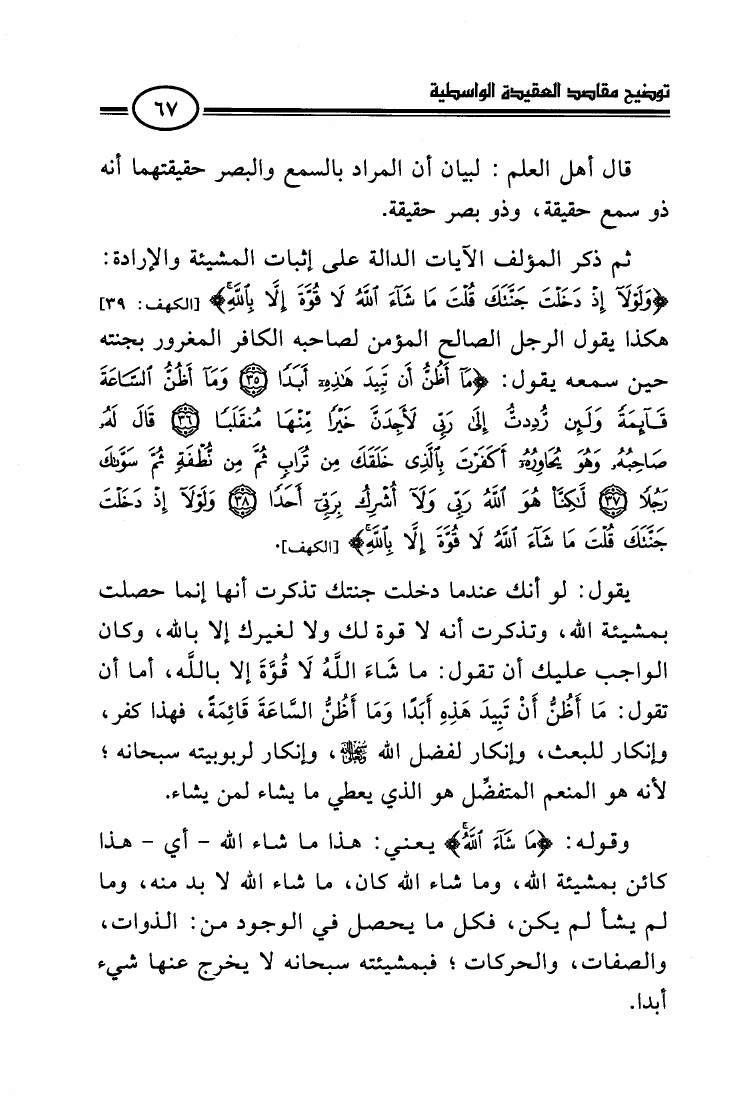 توضيح مقاصد العقيدة الواسطية
٦٧
قال أهل العلم : لبيان أن المراد بالسمع والبصر حقيقتهما أنه
ذو سمع حقيقة، وذو بصر حقيقة.
ثم ذكر المؤلف الآيات الدالة على إثبات المشيئة والإرادة :
﴿وَلَوْلَآ إِذْ دَخَلْتَ جَنَّتَكَ قُلْتَ مَا شَآءَ ٱللَّهُ لَا قُوَّةَ إِلَّا بِٱللَّهِۚ﴾ [الكهف: ٣٩]
هكذا يقول الرجل الصالح المؤمن لصاحبه الكافر المغرور بجنته
حين سمعه يقول: ﴿مَآ أَظُنُّ أَن تَبِيدَ هَٰذِهِۦٓ أَبَدًا ٣٥ وَمَآ أَظُنُّ ٱلسَّاعَةَ
قَآئِمَةً وَلَئِن رُّدِدتُّ إِلَىٰ رَبِّى لَأَجِدَنَّ خَيْرًا مِّنْهَا مُنقَلَبًا ٣٦ قَالَ لَهُۥ
صَاحِبُهُۥ وَهُوَ يُحَاوِرُهُۥٓ أَكَفَرْتَ بِٱلَّذِى خَلَقَكَ مِن تُرَابٍ ثُمَّ مِن نُّطْفَةٍ ثُمَّ سَوَّىٰكَ
رَجُلًا ٣٧ لَّٰكِنَّا۠ هُوَ ٱللَّهُ رَبِّى وَلَآ أُشْرِكُ بِرَبِّىٓ أَحَدًا ٣٨ وَلَوْلَآ إِذْ دَخَلْتَ
جَنَّتَكَ قُلْتَ مَا شَآءَ ٱللَّهُ لَا قُوَّةَ إِلَّا بِٱللَّهِۚ﴾ [الكهف].
يقول: لو أنك عندما دخلت جنتك تذكرت أنها إنما حصلت
بمشيئة الله، وتذكرت أنه لا قوة لك ولا لغيرك إلا بالله، وكان
الواجب عليك أن تقول: ما شَاءَ اللَّهُ لَا قُوَّةَ إلا بـاللَّه، أما أن
تقول: مَا أَظُنُّ أَنْ تَبِيدَ هَذِهِ أَبَدًا وَمَا أَظُنُّ السَّاعَةَ قَائِمَةً، فهذا كفر،
وإنكار للبعث، وإنكار لفضل الله ﷿، وإنكار لربوبيته سبحانه ؛
لأنه هو المنعم المتفضِّل هو الذي يعطي ما يشاء لمن يشاء.
وقوله: ﴿مَا شَآءَ ٱللَّهُۚ﴾ يعني: هذا ما شاء الله - أي - هذا
كائن بمشيئة الله، وما شاء الله كان، ما شاء الله لا بد منه، وما
لم يشأ لم يكن، فكل ما يحصل في الوجود من: الذوات،
والصفات، والحركات ؛ فبمشيئته سبحانه لا يخرج عنها شيء
أبدا.